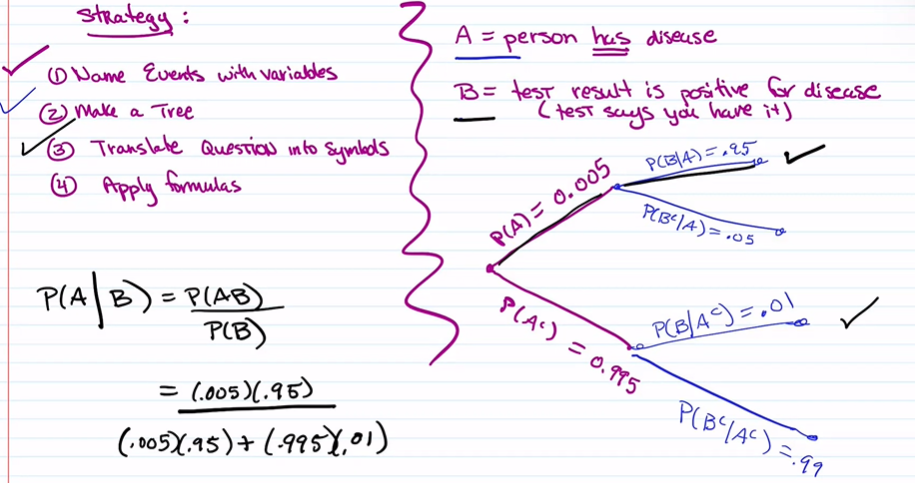 Strategy :
① Name Events with variables
② Make a Tree
③ Translate Question into symbols
④ Apply formulas
P(A|B) = P(AB)
P(B)
= (.005)(.95)
(.005)(.95) + (.995)(.01)
A = person has disease
B = test result is positive for disease
(test says you have it)
P(A) = 0.005
P(B|A) = .95
P(Bᶜ|A) = .05
P(Aᶜ) = 0.995
P(B|Aᶜ) = .01
P(Bᶜ|Aᶜ) = .99